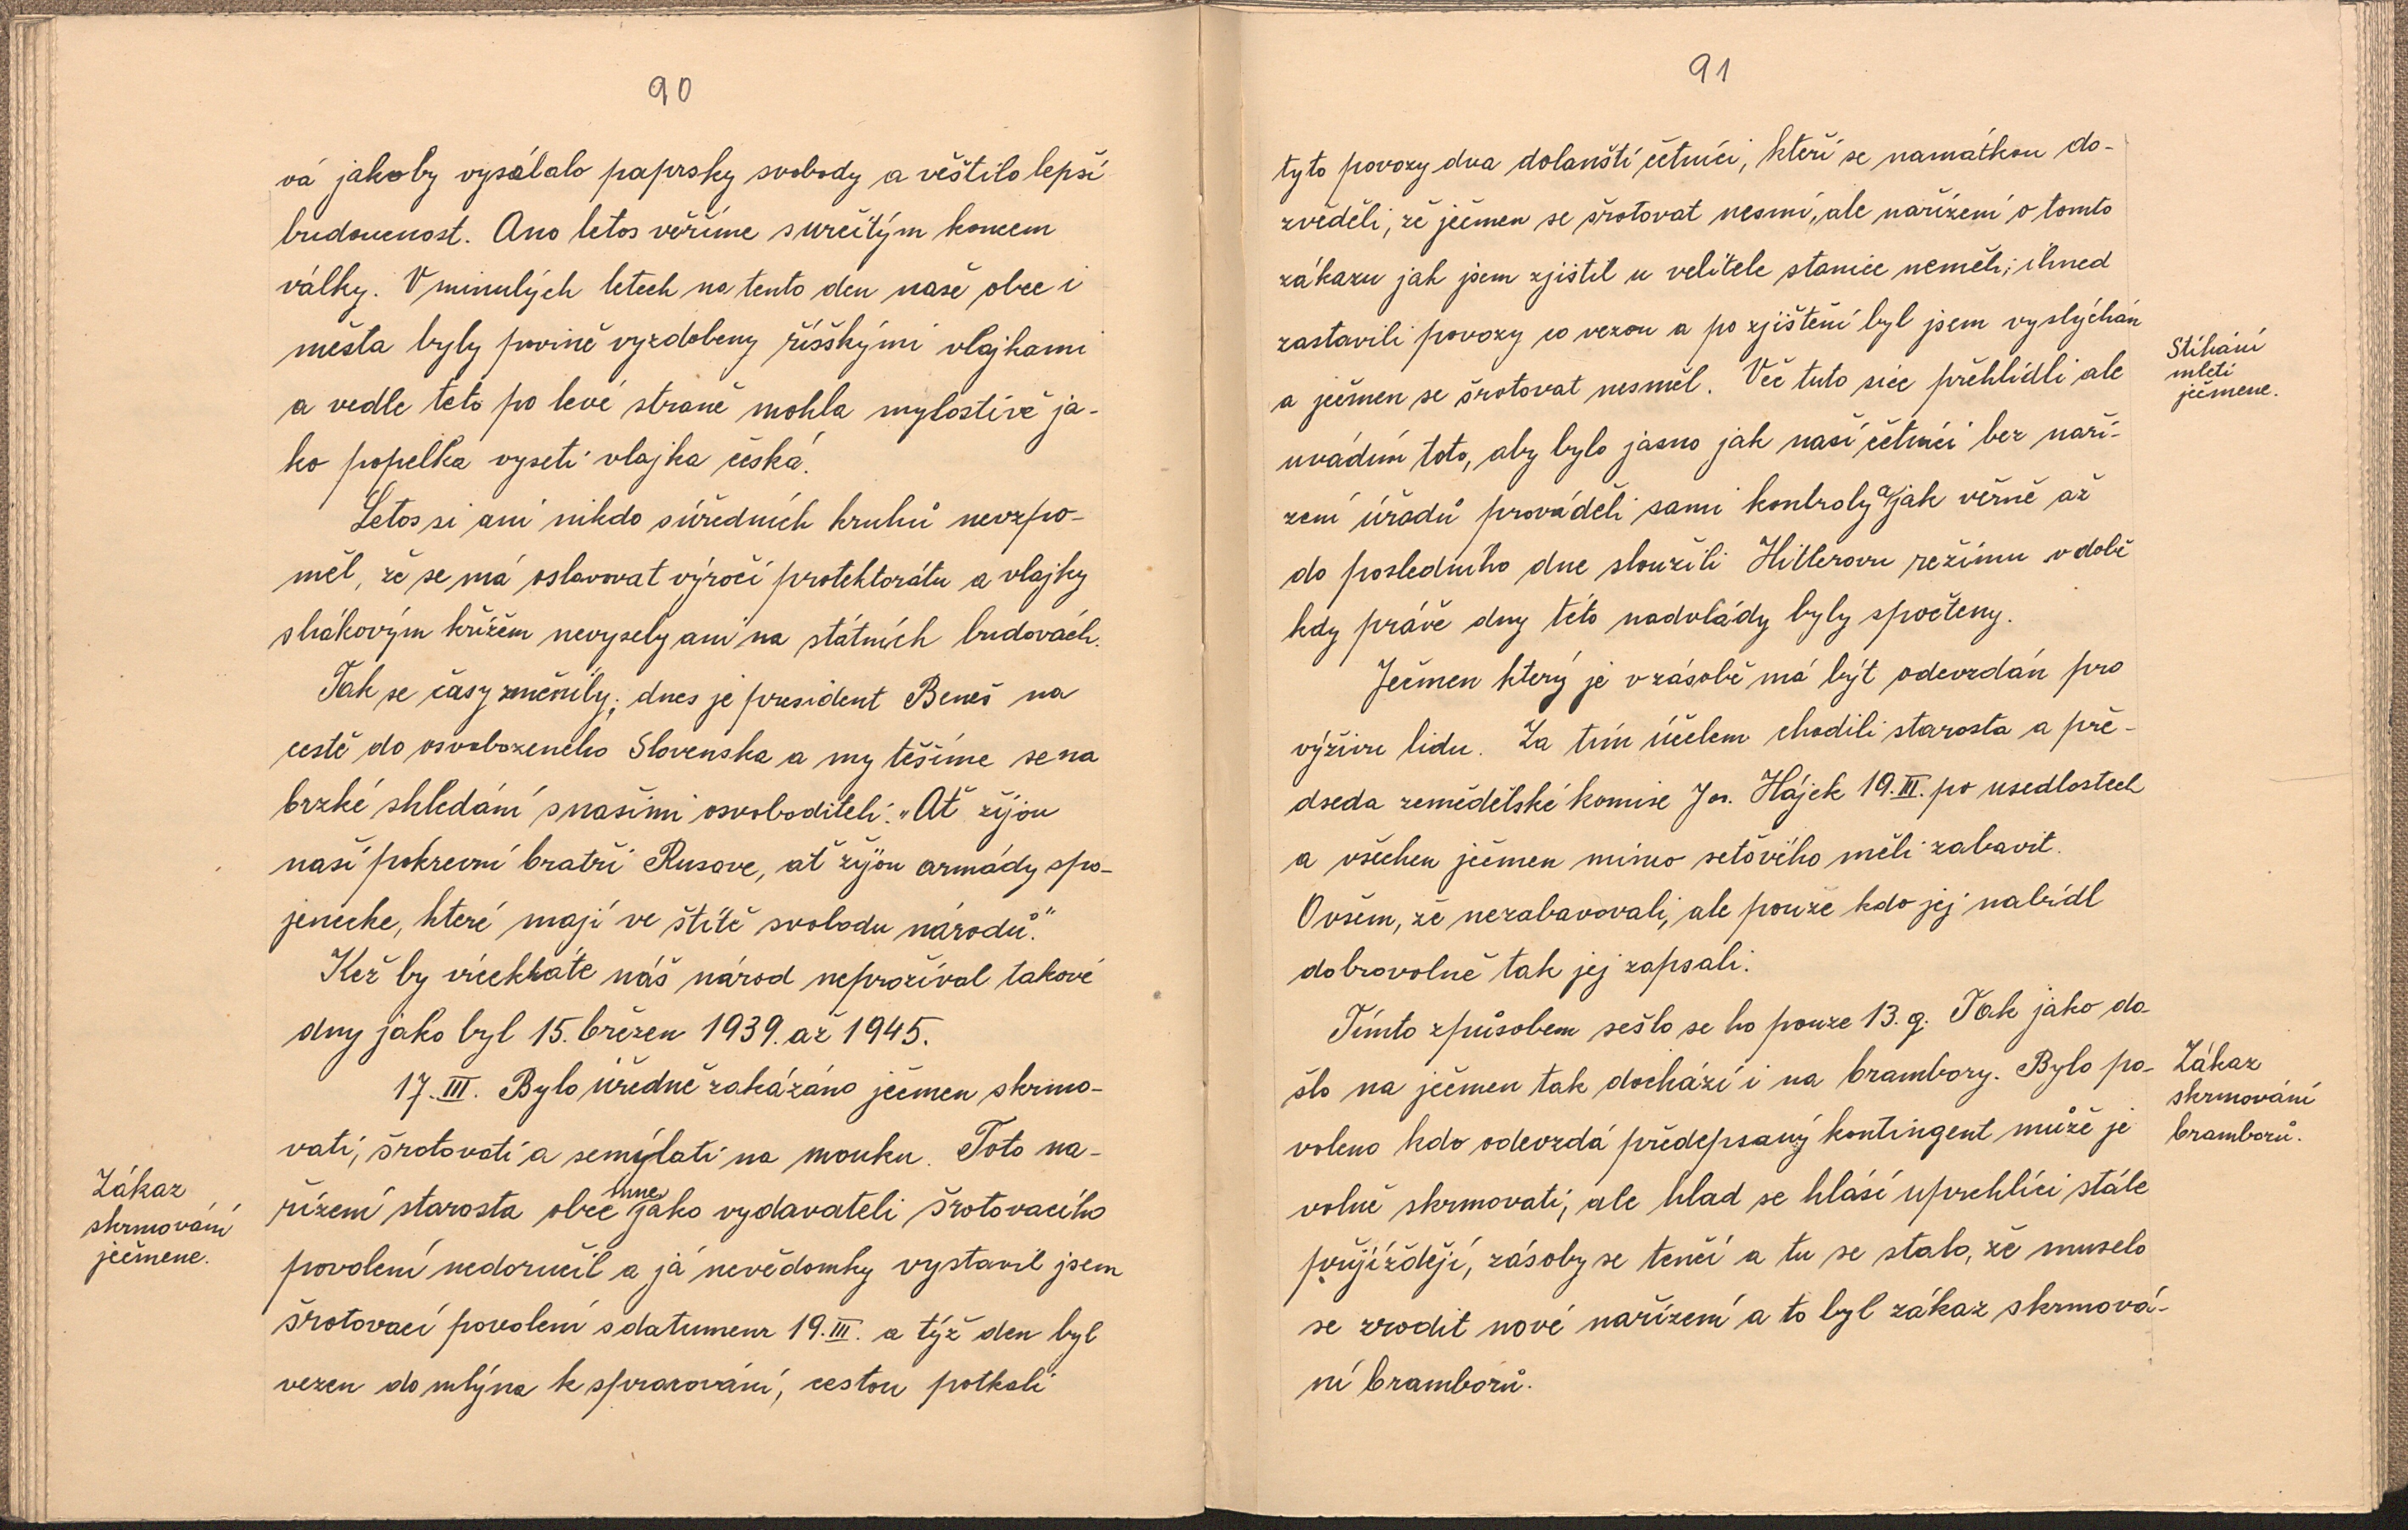 90
vá jakoby vysálalo paprsky svobody a věštilo lepší
budoucnost. Ano letos věříme s určitým koncem
války. V minulých letech na tento den naše obce i
města byly povině vyzdobeny říšškými vlajkami
a vedle této po levé straně mohla mylostivě ja-
ko popelka vyseti vlajka česká.
Letos si ani nikdo s úředních kruhů nevzpo-
měl, že se má oslavovat výročí protektorátu a vlajky
s hákovým křížem nevysely ani na státních budovách.
Tak se časy změnily; dnes je president Beneš na
cestě do osvobozeného Slovenska a my těšíme se na
brzké shledání s našimi osvoboditeli: „Ať žijou
naší pokrevní bratří Rusove, ať žijou armády spo-
jenecke, které mají ve štítě svobodu národů."
Kéž by vícekráte náš národ neprožíval takové
dny jako byl 15. březen 1939. až 1945.
17. III. Bylo úředně zakázáno ječmen skrmo-
vati, šrotovati a semýlati na mouku. Toto na-
Zákaz
skrmování
ječmene.
řízení starosta obce mne jako vydavateli šrotovacího
povolení nedoručil a já nevědomky vystavil jsem
šrotovací povolení s datumem 19. III. a týž den byl
vezen do mlýna k spracování, cestou potkali
91
tyto povozy dva dolanští četníci, kteří se namátkou do-
zvěděli, že ječmen se šrotovat nesmí, ale nařízení o tomto
zákazu jak jsem zjistil u velitele stanice neměli; ihned
zastavili povozy co vezou a po zjištění byl jsem vyslýchán
a ječmen se šrotovat nesměl. Věc tuto sice přehlídli ale
Stíhání
mletí
ječmene.
uvádím toto, aby bylo jasno jak naší četníci bez naří-
zení úřadů prováděli sami kontroly a jak věrně až
do posledního dne sloužili Hitlerovu režimu v době
kdy právě dny této nadvlády byly spočteny.
Ječmen který je v zásobě má být odevzdán pro
výživu lidu. Za tím účelem chodili starosta a pře-
dseda zemědělské komise Jos. Hájek 19. III. po usedlostech
a všechen ječmen mimo seťového měli zabavit.
Ovšem, že nezabavovali, ale pouze kdo jej nabídl
dobrovolně tak jej zapsali.
Tímto způsobem sešlo se ho pouze 13. q. Tak jako do-
šlo na ječmen tak dochází i na brambory. Bylo po-
Zákaz
skrmování
bramborů.
voleno kdo odevzdá předepsaný kontingent může je
volně skrmovati, ale hlad se hlásí uprchlíci stále
přijíždějí, zásoby se tenčí a tu se stalo, že muselo
se zrodit nové nařízení a to byl zákaz skrmová-
ní bramborů.